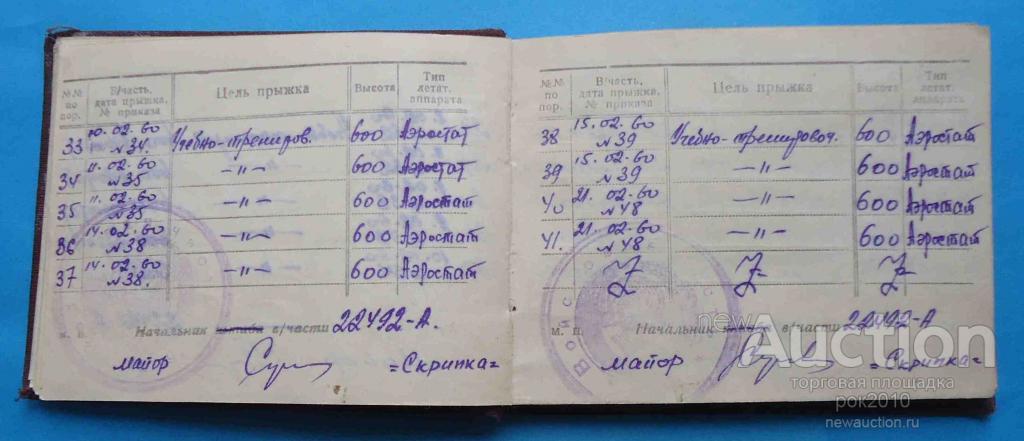 №№ по пор. В/часть, дата прыжка, № приказа Цель прыжка Высота Тип летат. аппарата
33 10.02.60 №34. Учебно-трениров. 600 Аэростат
34 11.02.60 №35 —"— 600 Аэростат
35 11.02.60 №35 —"— 600 Аэростат
36 14.02.60 №38 —"— 600 Аэростат
37 14.02.60 №38. —"— 600 Аэростат
м. п. Начальник штаба в/части 22492-А.
майор =Скрипка=
№№ по пор. В/часть, дата прыжка, № приказа Цель прыжка Высота Тип летат. аппарата
38 15.02.60 №39 Учебно-тренировоч. 600 Аэростат
39 15.02.60 №39 —"— 600 Аэростат
40 21.02.60 №48 —"— 600 Аэростат
41. 21.02.60 №48 —"— 600 Аэростат
Z Z Z
м. п. Начальник штаба в/части 22492-А
майор =Скрипка=
ВОЙС
newAuction
торговая площадка
рок2010
newauction.ru